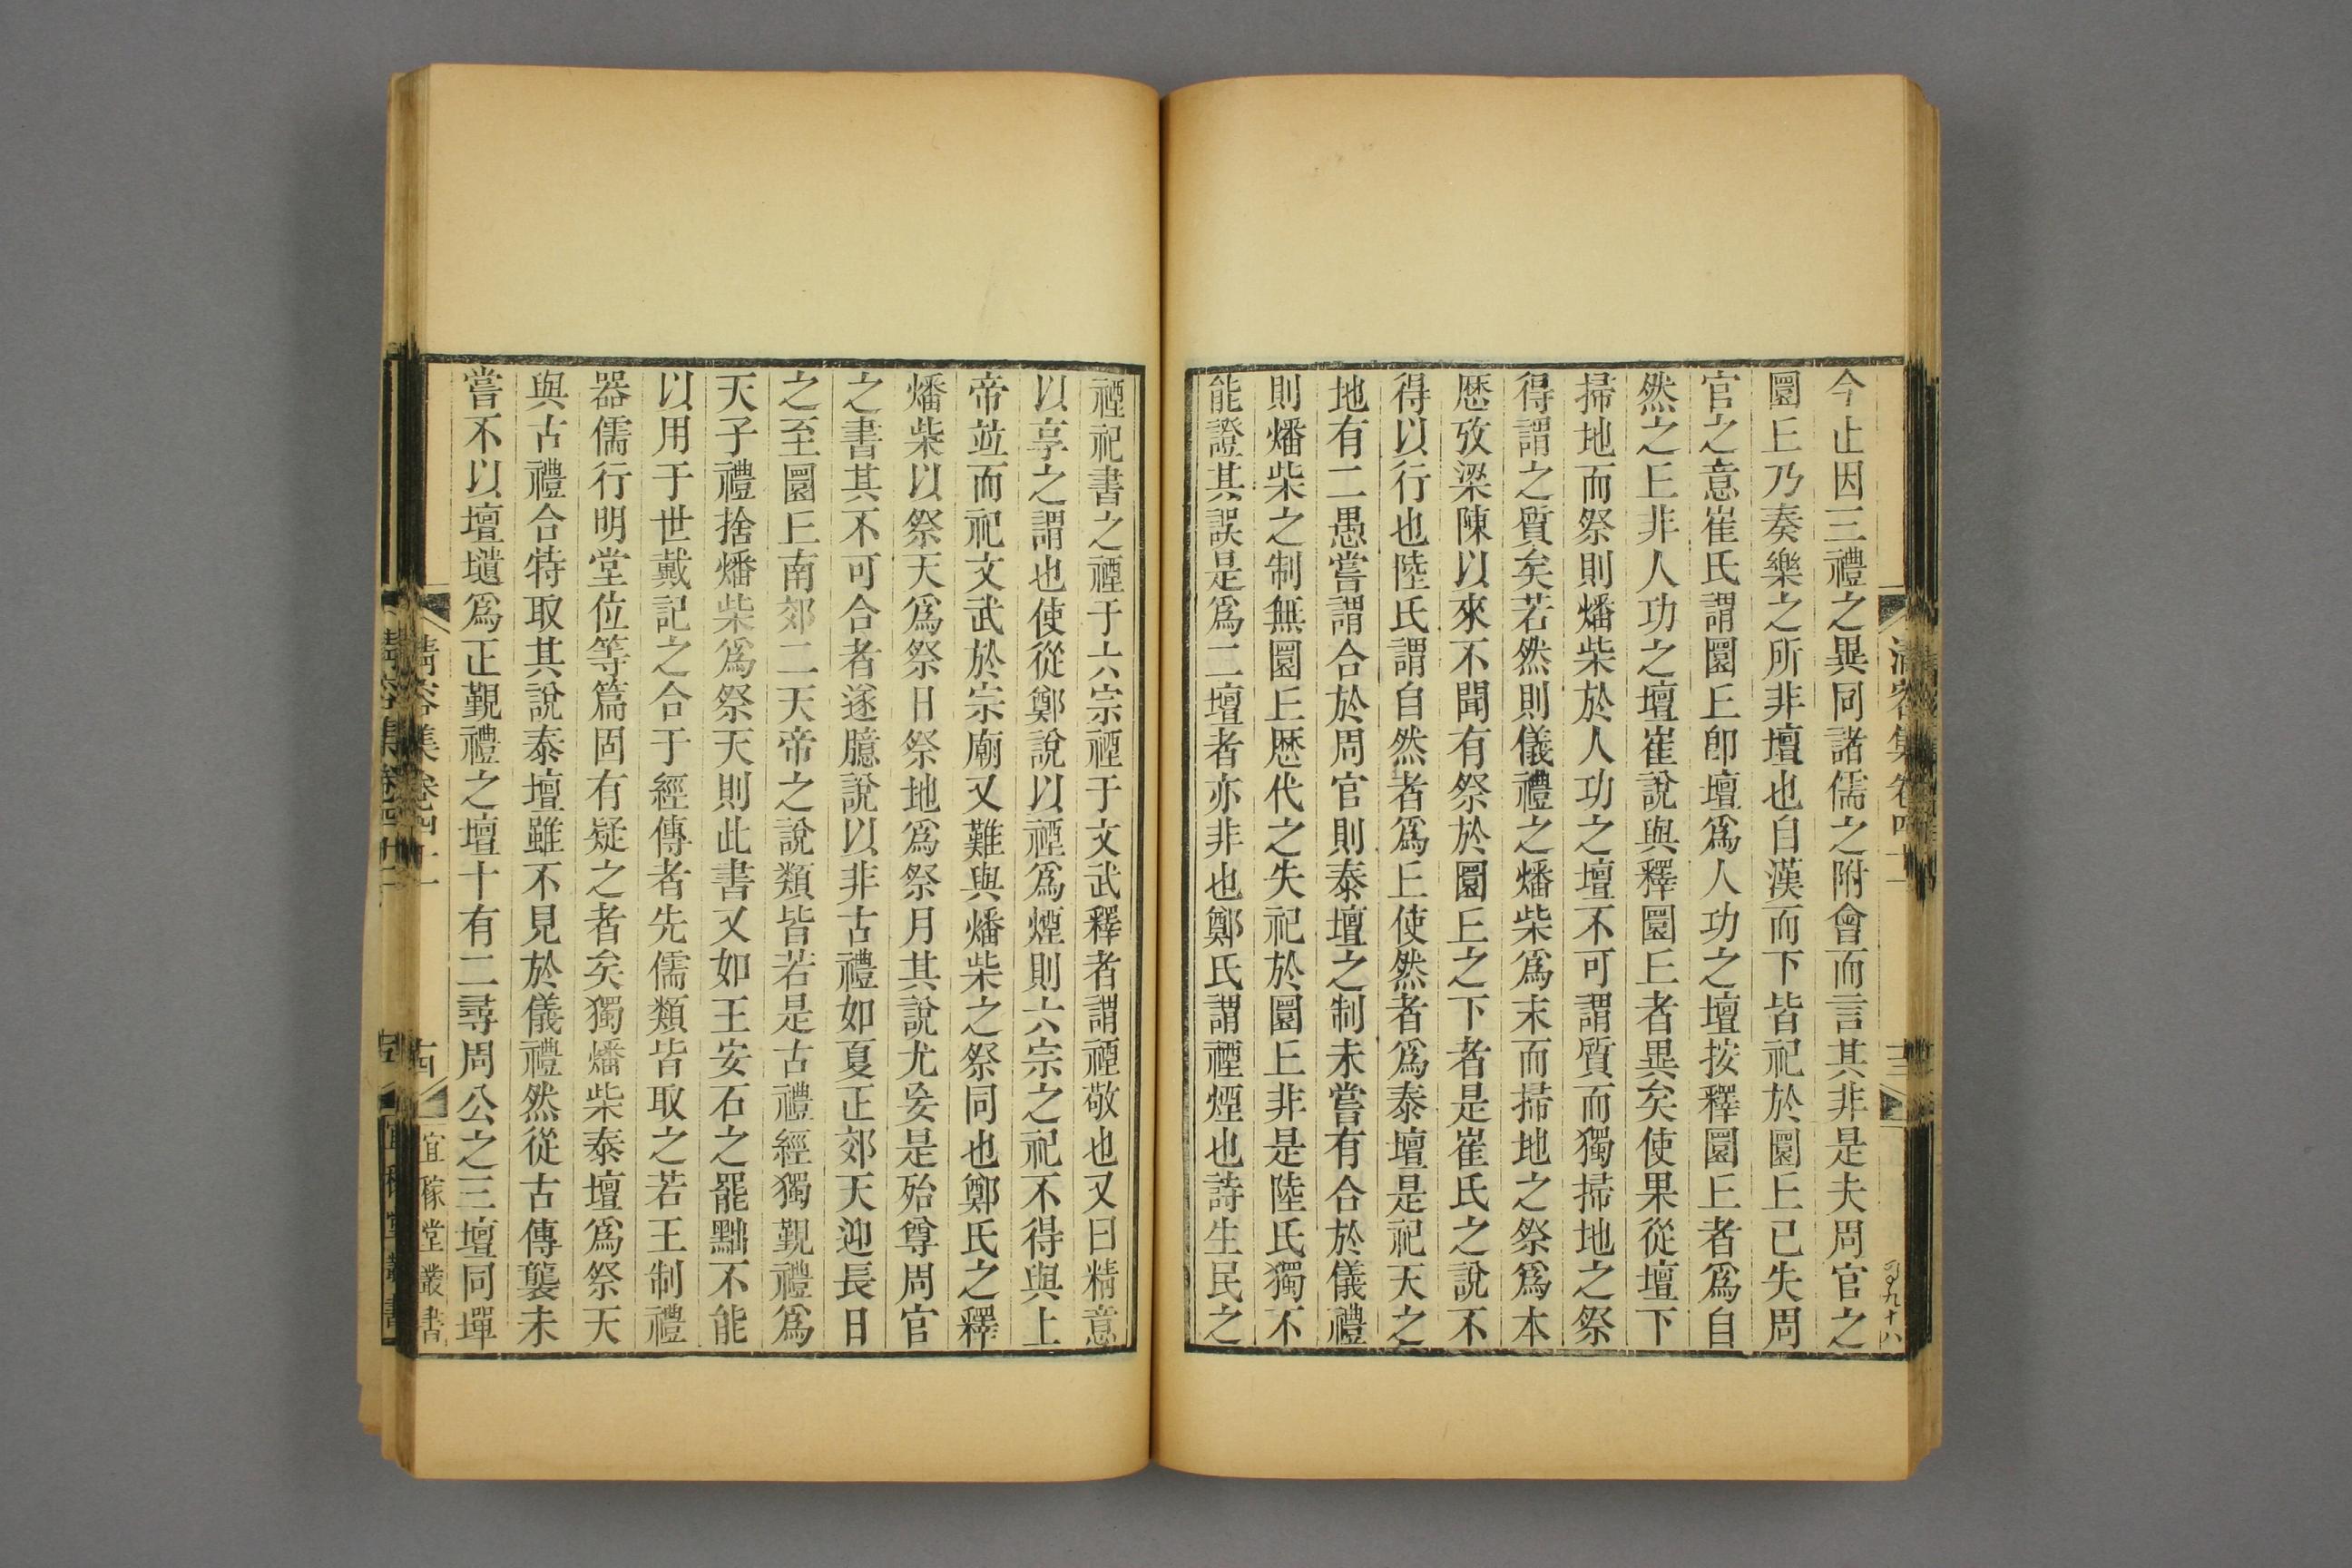 今止因三禮之異同諸儒之附會而言其非是夫周官之
圜丘乃奏樂之所非壇也自漢而下皆祀於圜丘已失周
官之意崔氏謂圜丘卽壇爲人功之壇按釋圜丘者爲自
然之丘非人功之壇崔說與釋圜丘者異矣使果從壇下
掃地而祭則燔柴於人功之壇不可謂質而獨掃地之祭
得謂之質矣若然則儀禮之燔柴爲末而掃地之祭爲本
歷攷梁陳以來不聞有祭於圜丘之下者是崔氏之說不
得以行也陸氏謂自然者爲丘使然者爲泰壇是祀天之
地有二愚嘗謂合於周官則泰壇之制未嘗有合於儀禮
則燔柴之制無圜丘歷代之失祀於圜丘非是陸氏獨不
能證其誤是爲二壇者亦非也鄭氏謂禋煙也詩生民之
禋祀書之禋于六宗禋于文武釋者謂禋敬也又曰精意
以享之謂也使從鄭說以禋爲煙則六宗之祀不得與上
帝竝而祀文武於宗廟又難與燔柴之祭同也鄭氏之釋
燔柴以祭天爲祭日祭地爲祭月其說尤妄是殆尊周官
之書其不可合者遂臆說以非古禮如夏正郊天迎長日
之至圜丘南郊二天帝之說類皆若是古禮經獨覲禮爲
天子禮捨燔柴爲祭天則此書又如王安石之罷黜不能
以用于世戴記之合于經傳者先儒類皆取之若王制禮
器儒行明堂位等篇固有疑之者矣獨燔柴泰壇爲祭天
與古禮合特取其說泰壇雖不見於儀禮然從古傳襲未
嘗不以壇壝爲正覲禮之壇十有二尋周公之三壇同墠
清容集卷四十一
宜稼堂叢書